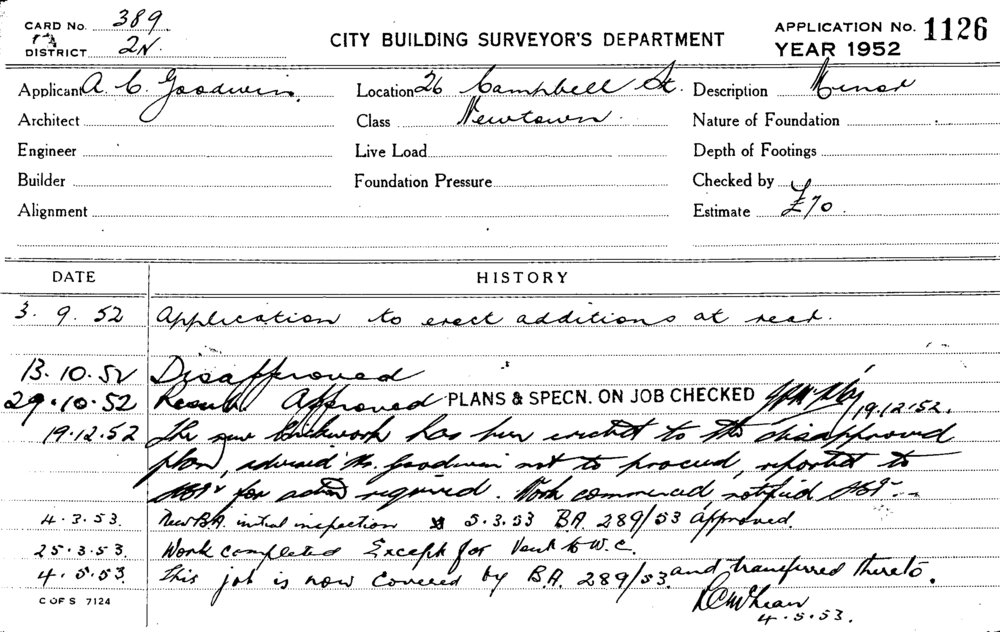 CARD No. 389
DISTRICT 2N.
CITY BUILDING SURVEYOR'S DEPARTMENT
APPLICATION No. 1126
YEAR 1952
Applicant A. C. Goodwin. Location 26 Campbell St. Description Minor
Architect Class Newtown. Nature of Foundation
Engineer Live Load Depth of Footings
Builder Foundation Pressure Checked by
Alignment Estimate £70.
DATE HISTORY
3. 9. 52 Application to erect additions at rear.
13.10.52 Disapproved
29.10.52 Approved PLANS & SPECN. ON JOB CHECKED 19.12.52.
19.12.52 The new brickwork has been erected to the disapproved
plan, advised Mr. Goodwin not to proceed, reported to
for action required. Work commenced, notified
4.3.53. New B.A. initial inspection 5.3.53 B.A. 289/53 approved.
25.3.53. Work completed Except for Vent to W.C.
4.5.53. This job is now covered by B.A. 289/53 and transferred thereto.
C OF S 7124
4.5.53.